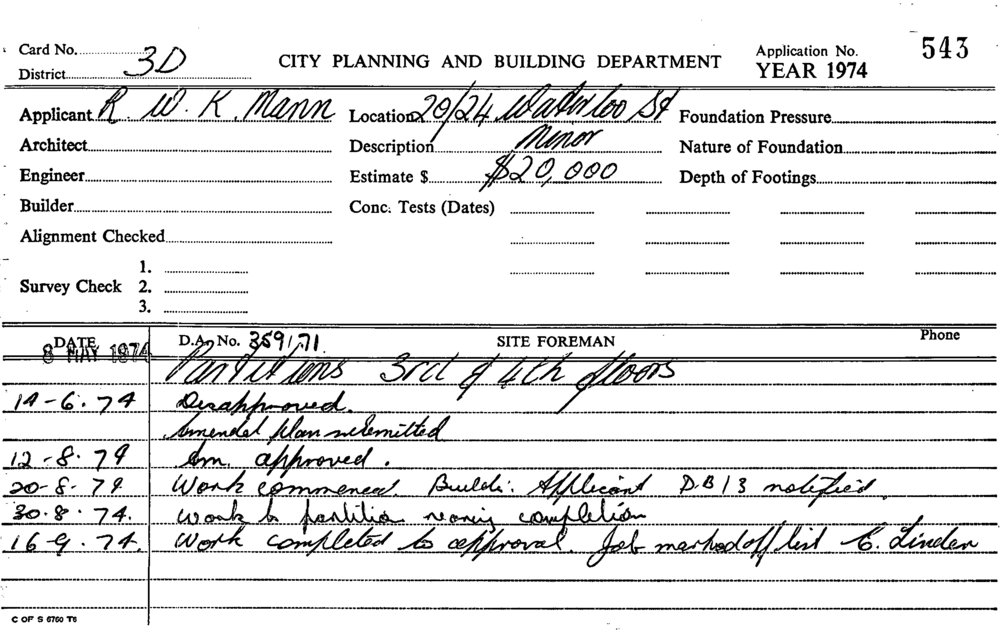 Card No. 3D
District
CITY PLANNING AND BUILDING DEPARTMENT
Application No. 543
YEAR 1974
Applicant R. W. K. Mann Location 20/24 Waterloo St Foundation Pressure
Architect Description Minor Nature of Foundation
Engineer Estimate $ $20,000 Depth of Footings
Builder Conc. Tests (Dates)
Alignment Checked
1.
Survey Check 2.
3.
DATE D.A. No. 359171 SITE FOREMAN Phone
8 MAY 1974
Partitions 3rd & 4th floors
14-6.74 Disapproved.
Amended plan submitted
12-8.74 Am. approved.
20-8-74 Work commenced. Build: Applicant D.B 13 notified.
30.8.74. Work to partition nearing completion
16-9.74. Work completed to approval. Job marked off list C. Linden
C OF S 6760 T6